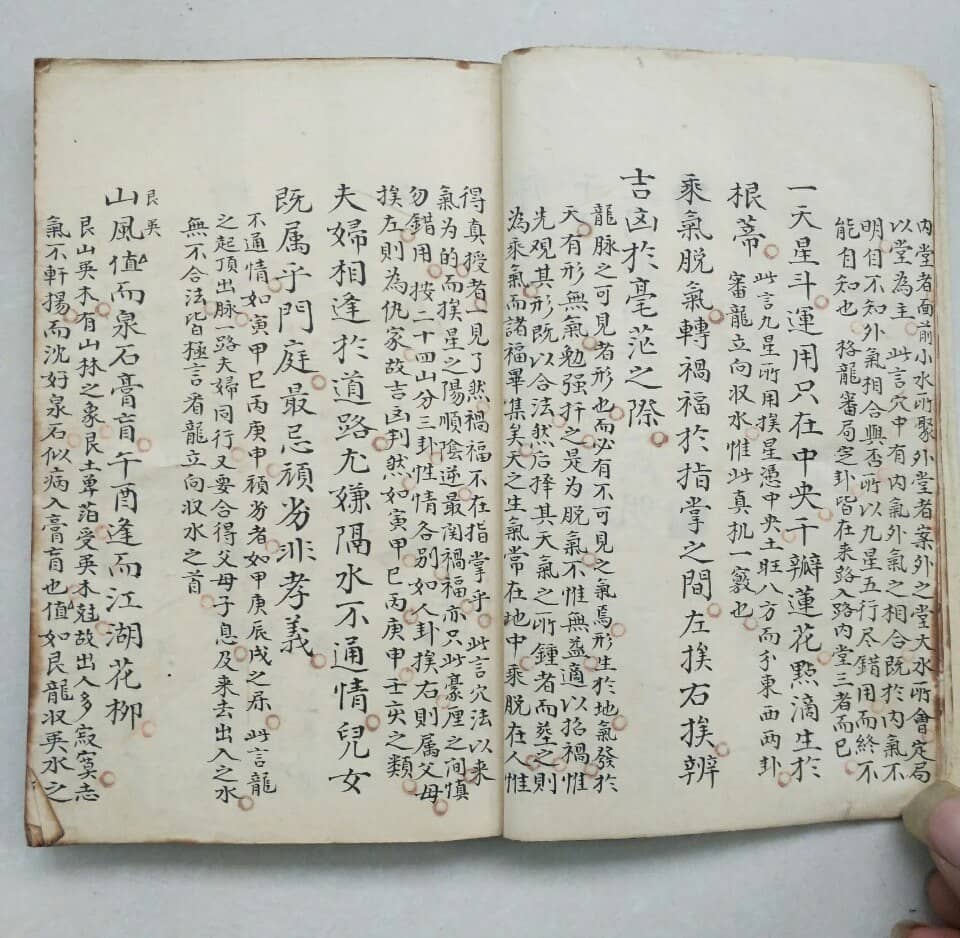 內堂者面前小水所聚外堂者案外之堂大水所會定局
以堂為主　此言穴中有內氣外氣之相合既於內氣不
明目不知外氣相合興否所以九星五行尽錯用而終不
能自知也　格龍審局定卦皆在来路入路內堂三者而已
一天星斗運用只在中央千瓣蓮花點滴生於
根蒂
此言九星所用挨星憑中央土旺八方而分東西两卦
審龍立向収水惟此真机一竅也
乘氣脫氣轉禍福於指掌之間左挨右挨辨
吉凶於毫茫之際
龍脉之可見者形也而必有不可見之氣焉形生於地氣發於
天有形無氣勉强扞之是为脫氣不惟無益適以招禍惟
先观其形既以合法然后擇其天氣之所鍾者而塟之則
為乘氣而諸福畢集矣天之生氣常在地中乘脫在人惟
得真授者一見了然禍福不在指掌乎　此言穴法以来
氣为的而挨星之陽順陰逆最関禍福亦只此豪厘之间慎
勿錯用　按二十四山分三卦性情各别如人卦挨右則属父母
挨左則為仇家故吉凶判然如寅甲巳丙庚申壬亥之類
夫婦相逢於道路尤嫌隔水不通情兒女
既属乎門庭最忌頑劣非孝義
不通情如寅甲巳丙庚申頑劣者如甲庚辰戌之屌　此言龍
之起頂出脉一路夫婦同行又要合得父母子息及来去出入之水
無不合法皆極言看龍立向収水之首
艮巽
山風值而泉石膏肓午酉逢而江湖花柳
艮山巽木有山林之象艮土萆萡受巽木尅故出人多寂寞志
氣不軒揚而沈好泉石似病入膏肓也值如艮龍収巽水之